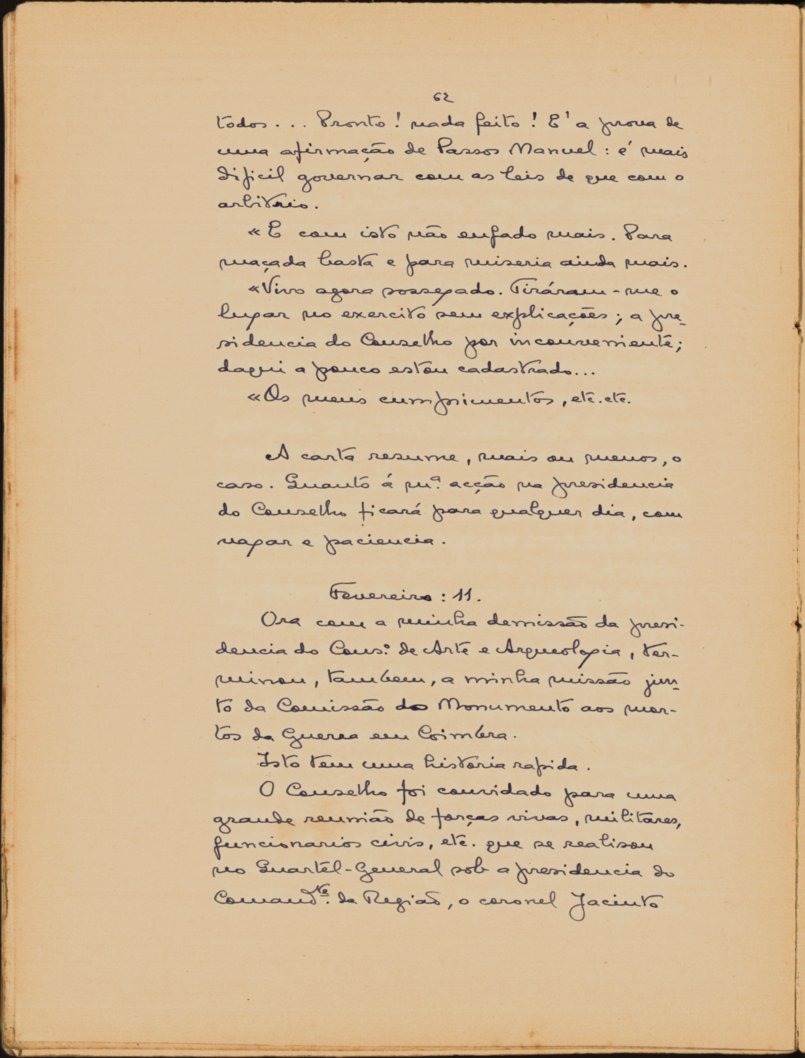 62
todos... Pronto! nada feito! E' a prova de
uma afirmação de Passos Manuel: é mais
dificil governar com as leis do que com o
arbitrio.
«E com isto não enfado mais. Para
maçada basta e para miseria ainda mais.
«Vivo agora sossegado. Tiráram-me o
lugar no exercito sem explicações; a pre-
sidencia do Conselho por inconveniente;
daqui a pouco estou cadastrado...
«Os meus cumprimentos, etc. etc.
A carta resume, mais ou menos, o
caso. Quanto á mª acção na presidencia
do Conselho ficará para qualquer dia, com
vagar e paciencia.
Fevereiro: 11.
Ora com a minha demissão da presi-
dencia do Cons.º de Arte e Arqueologia, ter-
minou, tambem, a minha missão jun-
to da Comissão do Monumento aos mor-
tos da Guerra em Coimbra.
Isto tem uma historia rapida.
O Conselho foi convidado para uma
grande reunião de forças vivas, militares,
funcionarios civis, etc. que se realisou
no Quartel-General sob a presidencia do
Comand.te da Região, o coronel Jacinto